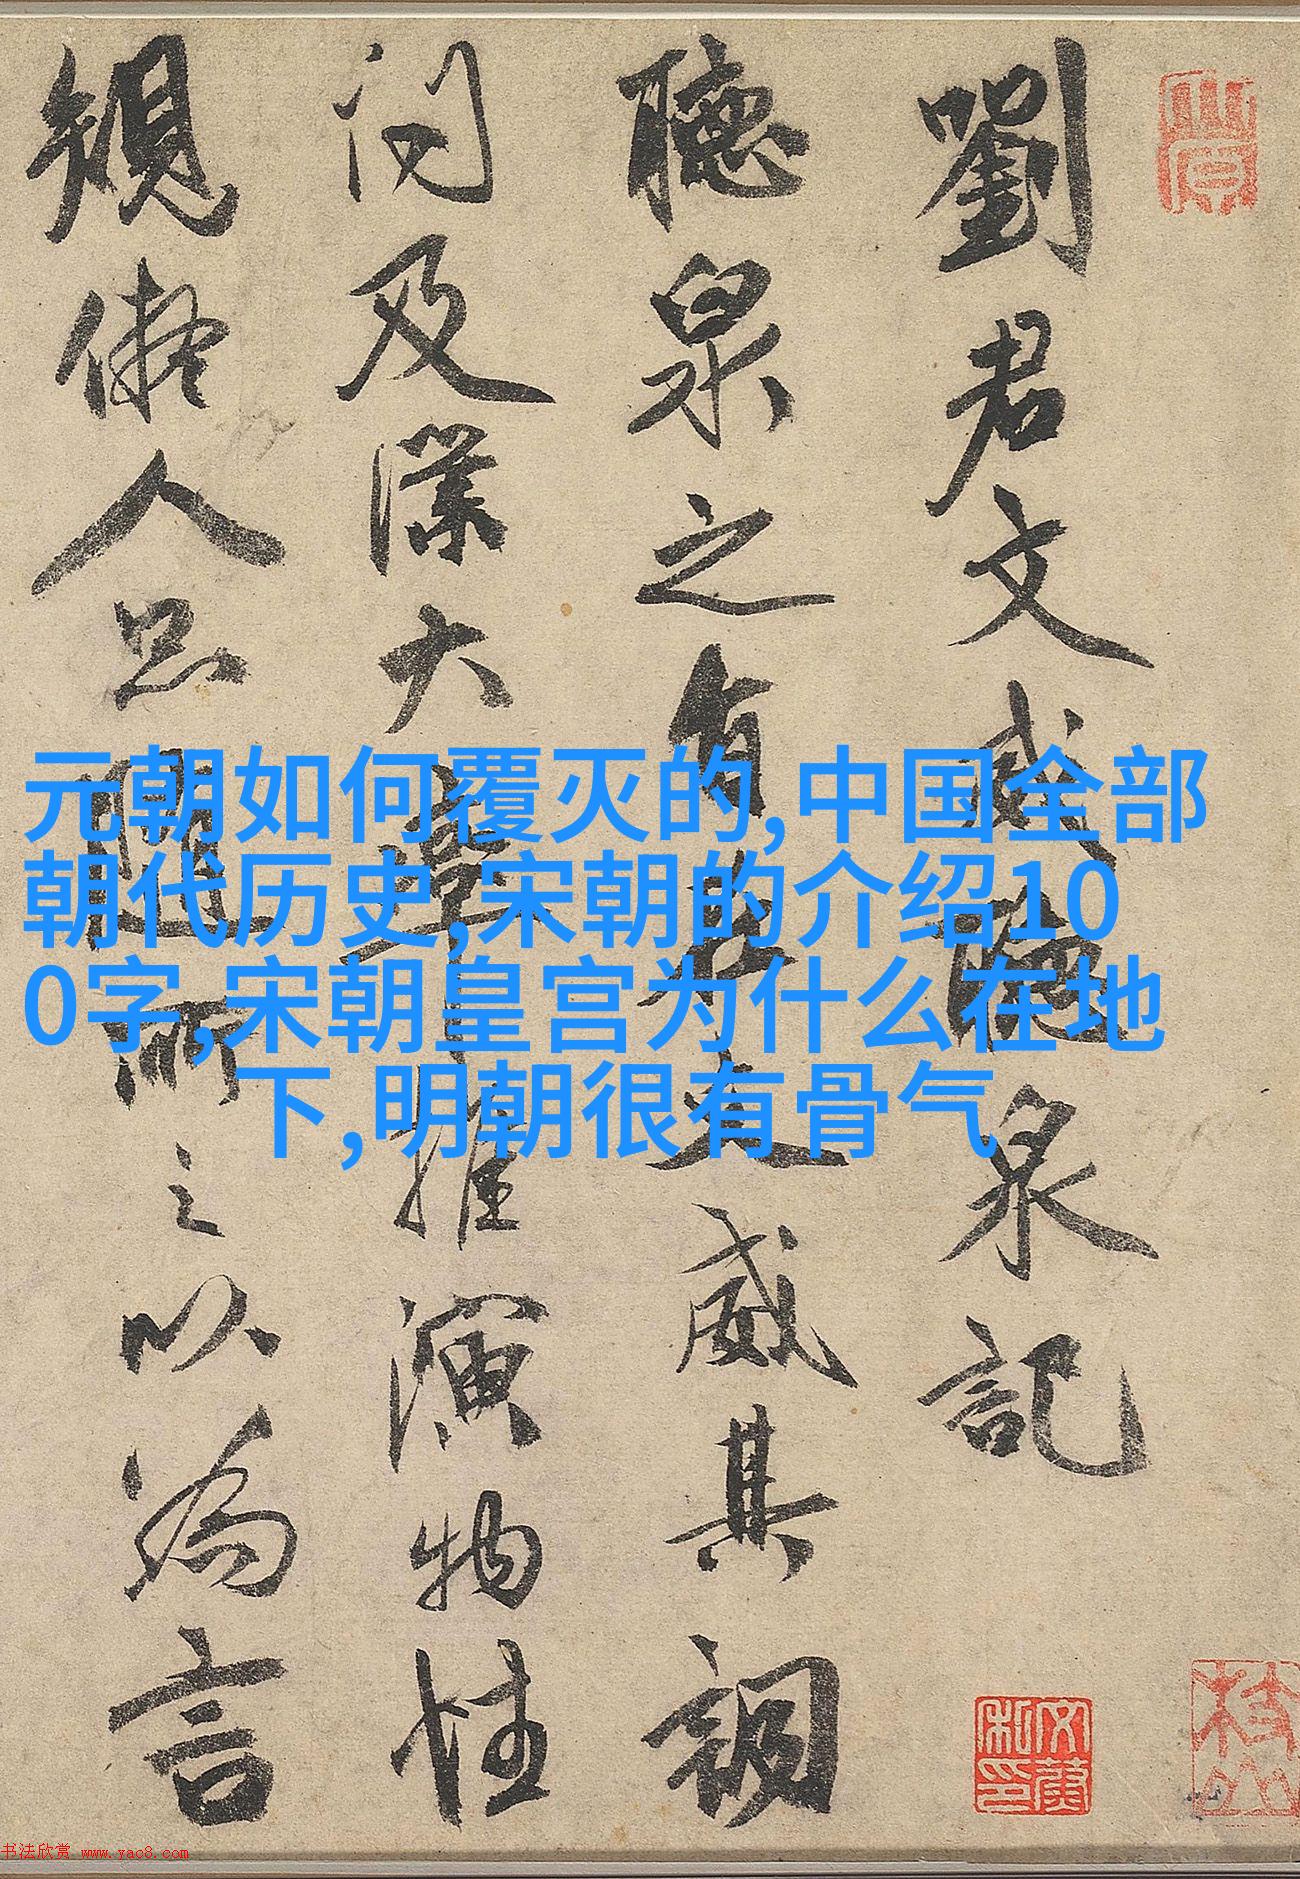 元朝如何覆灭的,中国全部
朝代历史,宋朝的介绍10
0字,宋朝皇宫为什么在地
下,明朝很有骨气
劉君文威聽泉記
聽泉之有文威其調
问及大章推演物性
規人所之以為言
书法欣赏 www.yac8.com